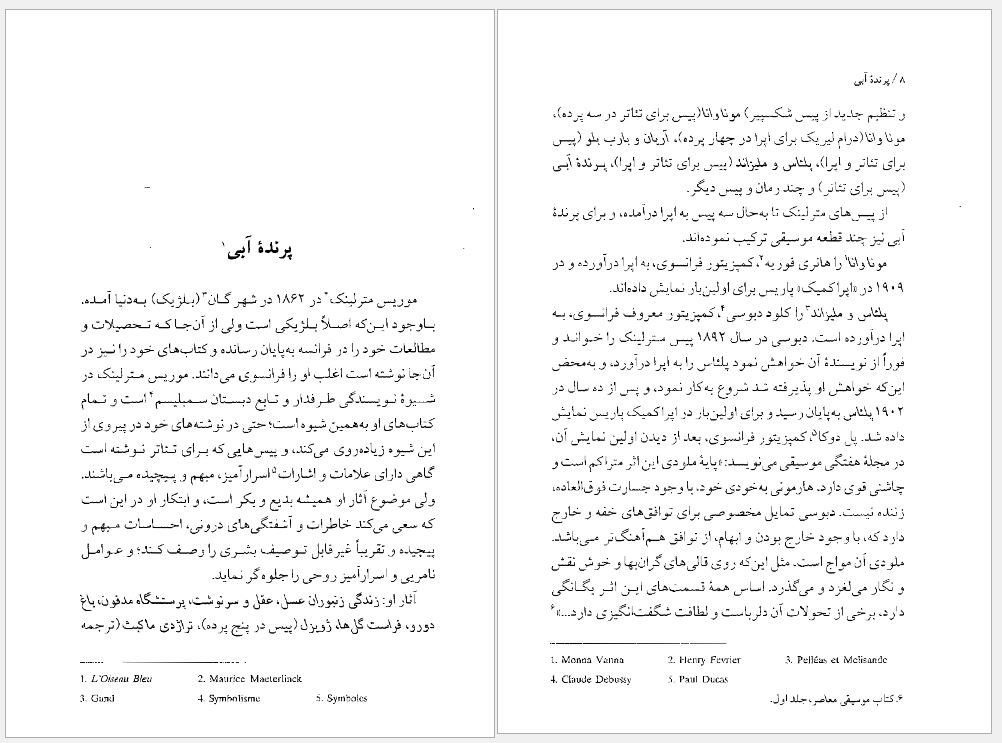 پرندهٔ آبی۱
موریس مترلینک۲ در ۱۸۶۲ در شهر گان۳ (بلژیک) به‌دنیا آمده.
باوجود این‌که اصلاً بلژیکی است ولی از آن‌جا که تحصیلات و
مطالعات خود را در فرانسه به‌پایان رسانده و کتاب‌های خود را نیز در
آن‌جا نوشته است اغلب او را فرانسوی می‌دانند. موریس مترلینک در
شیوهٔ نویسندگی طرفدار و تابع دبستان سمبلیسم۴ است و تمام
کتاب‌های او به‌همین شیوه است؛ حتی در نوشته‌های خود در پیروی از
این شیوه زیاده‌روی می‌کند، و پیس‌هایی که برای تئاتر نوشته است
گاهی دارای علامات و اشارات۵ اسرارآمیز، مبهم و پیچیده می‌باشند.
ولی موضوع آثار او همیشه بدیع و بکر است، و ابتکار او در این است
که سعی می‌کند خاطرات و آشفتگی‌های درونی، احساسات مبهم و
پیچیده و تقریباً غیرقابل توصیف بشری را وصف کند؛ و عوامل
نامریی و اسرارآمیز روحی را جلوه‌گر نماید.
آثار او: زندگی زنبوران عسل، عقل و سرنوشت، پرستشگاه مدفون، باغ
دورو، فراست گل‌ها، ژویزل (پیس در پنج پرده)، تراژدی ماکبث (ترجمه
1. L'Oiseau Bleu 2. Maurice Maeterlinck
3. Gand 4. Symbolisme 5. Symboles
۸ / پرندهٔ آبی
و تنظیم جدید از پیس شکسپیر) مونا وانا (پیس برای تئاتر در سه پرده)،
مونا وانا (درام لیریک برای اپرا در چهار پرده)، آریان و بارب بلو (پیس
برای تئاتر و اپرا)، پلئاس و ملیزاند (پیس برای تئاتر و اپرا)، پرندهٔ آبی
(پیس برای تئاتر) و چند رمان و پیس دیگر.
از پیس‌های مترلینک تا به‌حال سه پیس به اپرا درآمده، و برای پرندهٔ
آبی نیز چند قطعه موسیقی ترکیب نموده‌اند.
مونا وانا۱ را هانری فوریه۲، کمپزیتور فرانسوی، به اپرا درآورده و در
۱۹۰۹ در «اپراکمیک» پاریس برای اولین‌بار نمایش داده‌اند.
پلئاس و ملیزاند۳ را کلود دبوسی۴، کمپزیتور معروف فرانسوی، به
اپرا درآورده است. دبوسی در سال ۱۸۹۲ پیس مترلینک را خواند و
فوراً از نویسندهٔ آن خواهش نمود پلئاس را به اپرا درآورد، و به‌محض
این‌که خواهش او پذیرفته شد شروع به‌کار نمود، و پس از ده سال در
۱۹۰۲ پلئاس به‌پایان رسید و برای اولین‌بار در اپراکمیک پاریس نمایش
داده شد. پل دوکا۵، کمپزیتور فرانسوی، بعد از دیدن اولین نمایش آن،
در مجلهٔ هفتگی موسیقی می‌نویسد: «پایهٔ ملودی این اثر متراکم است و
چاشنی قوی دارد. هارمونی به‌خودی خود، با وجود جسارت فوق‌العاده،
زننده نیست. دبوسی تمایل مخصوصی برای توافق‌های خفه و خارج
دارد که، با وجود خارج بودن و ابهام، از توافق هم‌آهنگ‌تر می‌باشد.
ملودی آن مواج است، مثل این‌که روی قالی‌های گران‌بها و خوش نقش
و نگار می‌لغزد و می‌گذرد. اساس همهٔ قسمت‌های این اثر یگانگی
دارد، برخی از تحولات آن دلرباست و لطافت شگفت‌انگیزی دارد...»۶
1. Monna Vanna 2. Henry Fevrier 3. Pelléas et Melisande
4. Claude Debussy 5. Paul Ducas
۶. کتاب موسیقی معاصر، جلد اول.